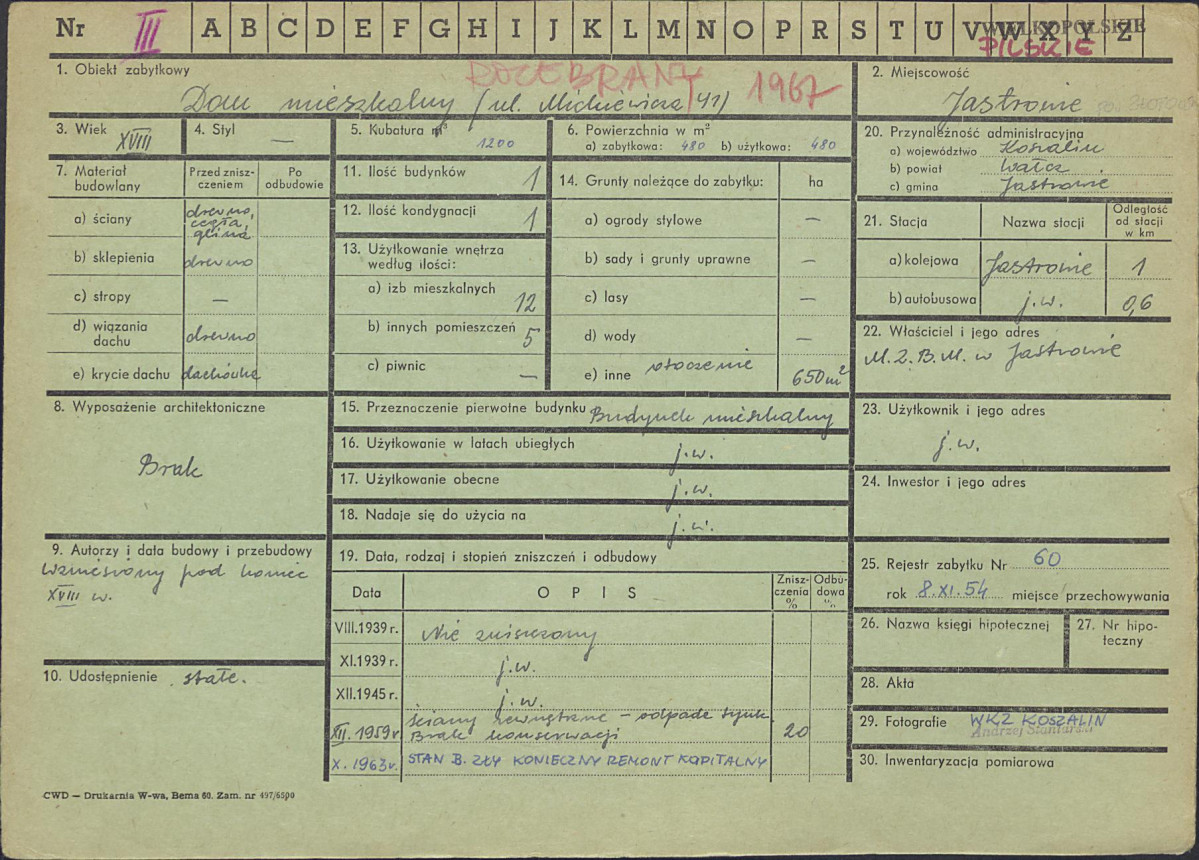 Nr III A B C D E F G H I J K L M N O P R S T U V W X Y Z
WIELKOPOLSKIE
PILSKIE
1. Obiekt zabytkowy
ROZEBRANY 1967
Dom mieszkalny (ul. Mickiewicza 41)
2. Miejscowość
Jastrowie
3. Wiek
XVIII
4. Styl
—
5. Kubatura m³
1200
6. Powierzchnia w m²
a) zabytkowa: 480 b) użytkowa: 480
20. Przynależność administracyjna
a) województwo Koszalin
b) powiat Wałcz
c) gmina Jastrowie
7. Materiał budowlany
Przed zniszczeniem
Po odbudowie
a) ściany
drewno,
cegła,
glina
b) sklepienia drewno
c) stropy —
d) wiązania dachu drewno
e) krycie dachu dachówka
11. Ilość budynków 1
12. Ilość kondygnacji 1
13. Użytkowanie wnętrza
według ilości:
a) izb mieszkalnych 12
b) innych pomieszczeń 5
c) piwnic —
14. Grunty należące do zabytku: ha
a) ogrody stylowe —
b) sady i grunty uprawne —
c) lasy —
d) wody —
e) inne otoczenie 650 m²
21. Stacja Nazwa stacji Odległość od stacji w km
a) kolejowa Jastrowie 1
b) autobusowa j.w. 0,6
22. Właściciel i jego adres
M.Z.B.M. w Jastrowie
8. Wyposażenie architektoniczne
Brak
15. Przeznaczenie pierwotne budynku Budynek mieszkalny
16. Użytkowanie w latach ubiegłych
j.w.
17. Użytkowanie obecne
j.w.
18. Nadaje się do użycia na
j.w.
23. Użytkownik i jego adres
j.w.
24. Inwestor i jego adres
9. Autorzy i data budowy i przebudowy
Wzniesiony pod koniec
XVIII w.
10. Udostępnienie stałe.
19. Data, rodzaj i stopień zniszczeń i odbudowy
Data OPIS Zniszczenia % Odbudowa %
VIII.1939 r. Nie zniszczony
XI.1939 r. j.w.
XII.1945 r. j.w.
XII. 1959 r ściany zewnętrzne – odpada tynk.
Brak konserwacji 20
X. 1963 r. STAN B. ZŁY KONIECZNY REMONT KAPITALNY
25. Rejestr zabytku Nr 60
rok 8.XI.54 miejsce przechowywania
26. Nazwa księgi hipotecznej
27. Nr hipoteczny
28. Akta
29. Fotografie WKZ KOSZALIN
Andrzej
30. Inwentaryzacja pomiarowa
CWD — Drukarnia W-wa, Bema 60. Zam. nr 497/6500